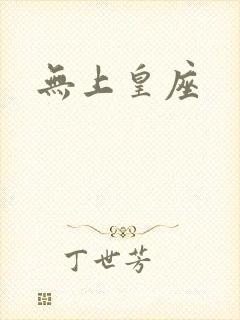 無上皇座
丁世芳